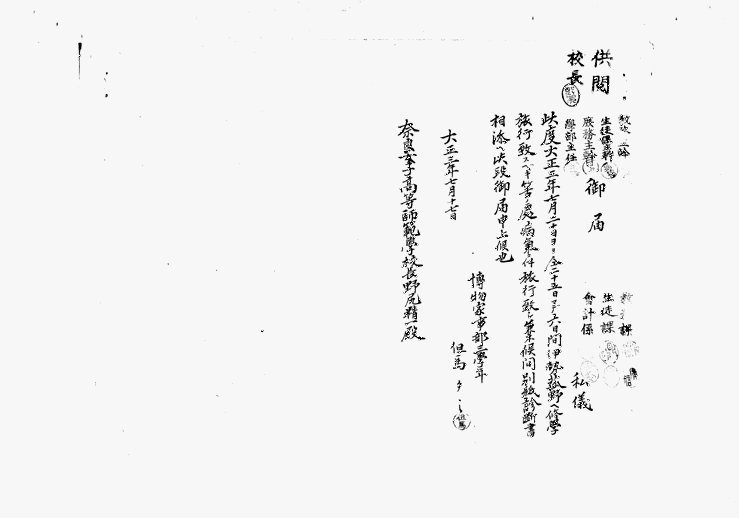 供閲
校長
教務主幹
生徒課主幹
庶務主幹
學部主任
教務課
生徒課
會計係
御届
私儀
此度大正三年七月二十日ヨリ仝二十五日マデ六日間伊勢菰野ヘ修學
旅行致スベキ筈ノ處病氣ニ付旅行致シ兼候間別紙診断書
相添ヘ此段御届申上候也
大正三年七月十七日
博物家事部三學年
但馬タ
奈良女子高等師範學校長野尻精一殿